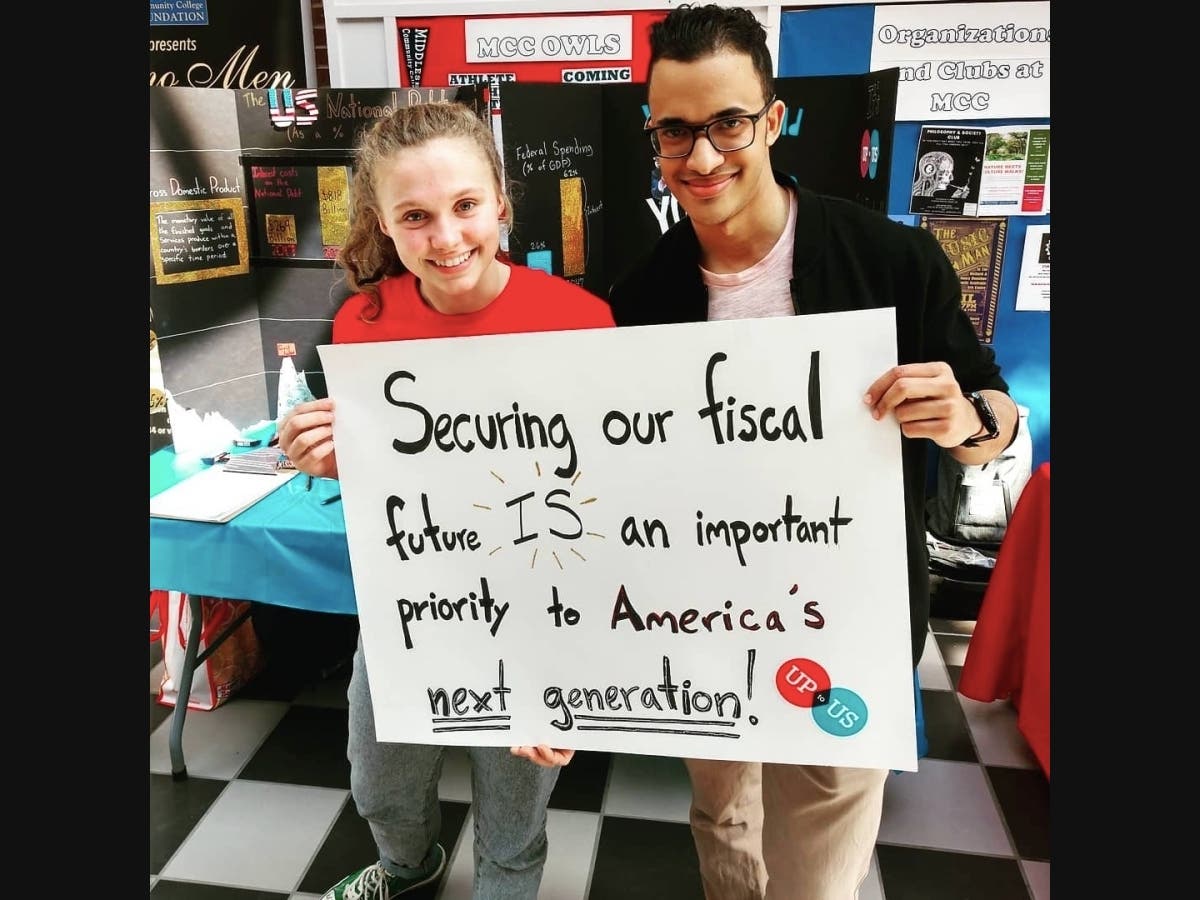 Community College
FOUNDATION
presents
no Men
MIDDLESEX
Community College
MCC OWLS
ATHLETE
COMING
Organizations
and Clubs at
MCC
The US National Debt
(As a %
Gross Domestic Product
The monetary value of all
the finished goods and
services produce within a
country's borders over a
specific time period.
Interest costs
on the
National Debt
$818
Billion
Federal Spending
(% of GDP)
62%
26%
PHILOSOPHY & SOCIETY
CLUB
NATURE MEETS
CULTURE WALKS!
THE
MAN
Securing our fiscal
future IS an important
priority to America's
next generation!
UP to US